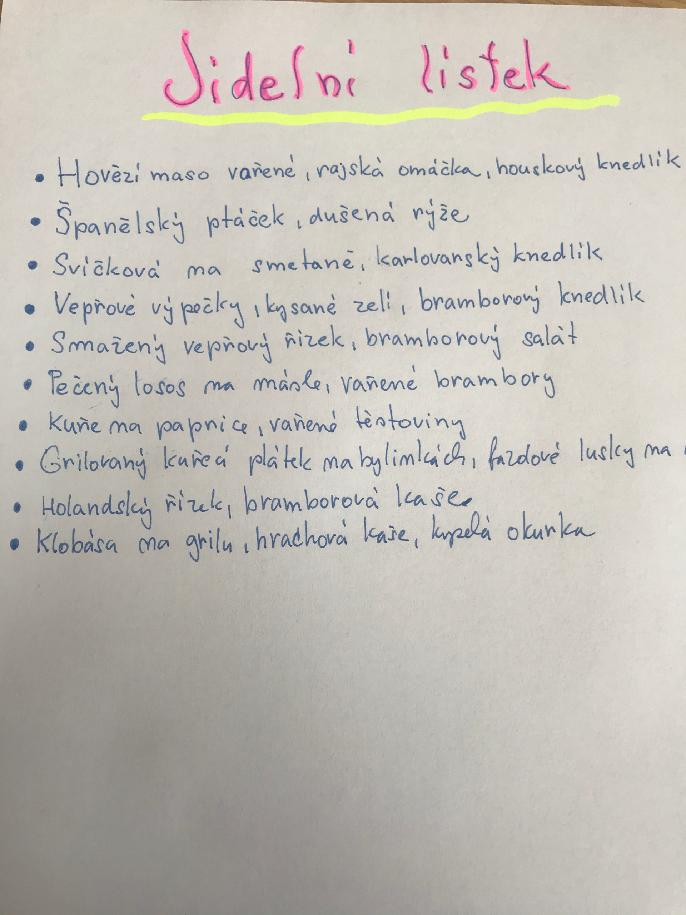 Jidelní lístek
• Hovězí maso vařené, rajská omáčka, houskový knedlík
• Španělský ptáček, dušená rýže
• Svíčková na smetaně, karlovarský knedlík
• Vepřové výpečky, kysané zelí, bramborový knedlík
• Smažený vepřový řízek, bramborový salát
• Pečený losos na másle, vařené brambory
• Kuře na paprice, vařené těstoviny
• Grilovaný kuřecí plátek na bylinkách, fazolové lusky na
• Holandský řízek, bramborová kaše
• Klobása na grilu, hrachová kaše, kyselá okurka